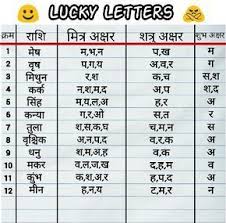 LUCKY LETTERS
क्रम राशि मित्र अक्षर शत्रु अक्षर शुभ अक्षर
1 मेष म,भ,न प,ख म
2 वृष प,ग,य अ,व,र ग
3 मिथुन र,श क,च स,श
4 कर्क न,श,म,द अ,प श,द
5 सिंह म,य,ल,अ ह,र अ
6 कन्या ग,र,ओ स,त र
7 तुला श,स,क,घ च,म,न स
8 वृश्चिक अ,न,प,द व,र,क अ
9 धनु श,म,अ,ह व,क अ
10 मकर व,ल,ज,ख द,ह,म व
11 कुंभ क,श,अ,र ह,प,द अ
12 मीन ह,न,य ट,म,र न